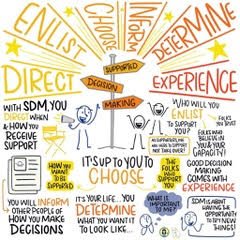 ENLIST
CHOOSE
INFORM
DETERMINE
DIRECT
SUPPORTED
DECISION
MAKING
EXPERIENCE
WITH SDM, YOU
DIRECT WHEN
& HOW YOU
RECEIVE
SUPPORT
WHO WILL YOU
ENLIST TO
SUPPORT YOU?
FOLKS
YOU TRUST
FOLKS WHO
BELIEVE IN
YOU & YOUR
CAPACITY!
AS SUPPORTERS, WE
ARE HERE TO SUPPORT
NOT TAKE OVER!
HOW YOU
WANT
TO BE
SUPPORTED
IT'S UP TO YOU TO
CHOOSE
THE
FOLKS
WHO
SUPPORT
YOU
GOOD DECISION
MAKING
COMES WITH
EXPERIENCE
YOU WILL INFORM
OTHER PEOPLE OF
HOW YOU MAKE
DECISIONS
IT'S YOUR LIFE... YOU
DETERMINE
WHAT YOU WANT IT
TO LOOK LIKE...
WHAT IS
IMPORTANT
TO ME?
SDM IS ABOUT
HAVING THE
OPPORTUNITY
TO TRY NEW
THINGS